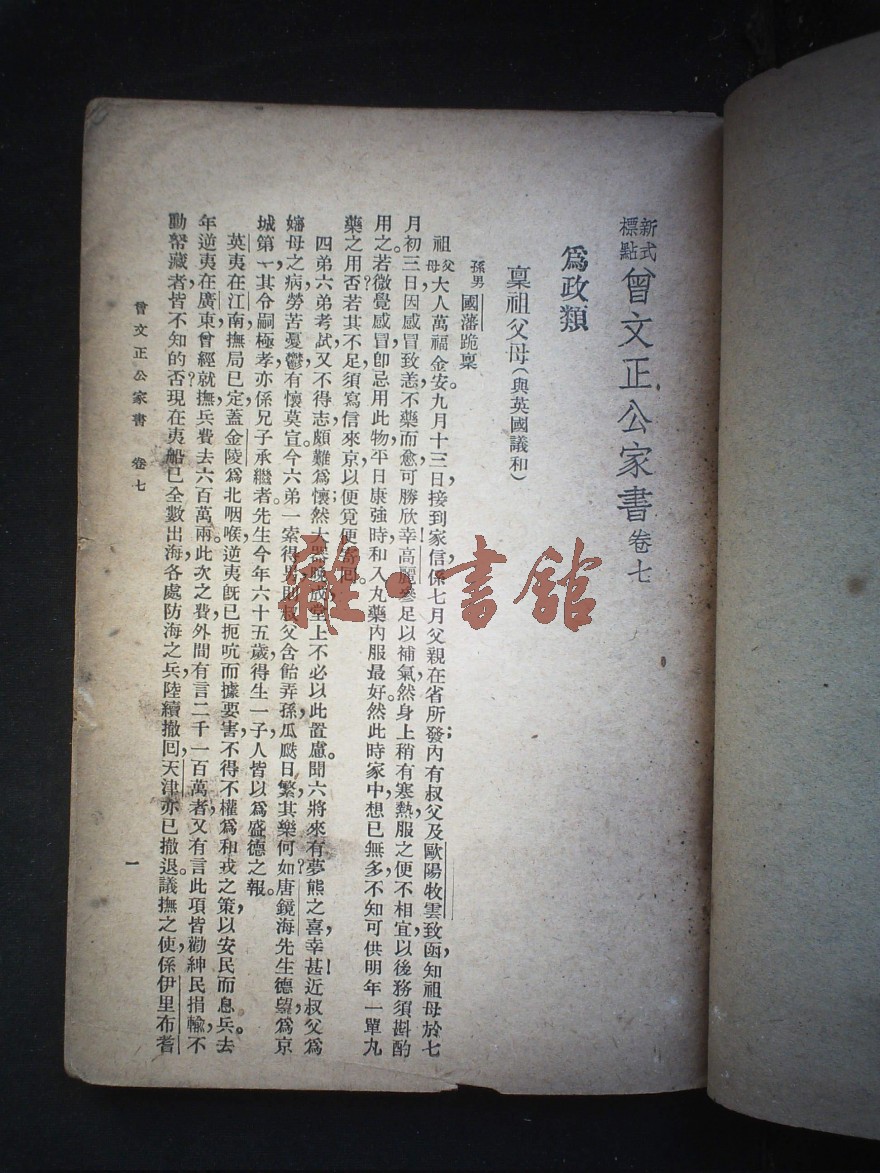 新式標點 曾文正公家書 卷七
爲政類
稟祖父母（與英國議和）
孫男國藩跪稟
祖父母大人萬福金安。九月十三日，接到家信，係七月父親在省所發，內有叔父及歐陽牧雲致函，知祖母於七
月初三日，因感冒致恙，不藥而愈，可勝欣幸！高麗參足以補氣，然身上稍有寒熱，服之便不相宜，以後務須斟酌
用之。若微覺感冒，卽忌用此物，平日康強時，和入丸藥內服最好。然此時家中想已無多，不知可供明年一單丸
藥之用否？若其不足，須寫信來京，以便覓便寄回。
四弟六弟考試，又不得志，頗難爲懷，然大器晚成，堂上不必以此置慮。聞六將來有夢熊之喜，幸甚！近叔父爲
嬸母之病，勞苦憂鬱，有懷莫宣。今六弟一索得男，則叔父含飴弄孫，瓜瓞日繁，其樂何如？唐鏡海先生德望爲京
城第一，其令嗣極孝，亦係兄子承繼者，先生今年六十五歲，得生一子，人皆以爲盛德之報。
英夷在江南，撫局已定，蓋金陵爲北咽喉，逆夷旣已扼吭而據要害，不得不權爲和戎之策，以安民而息兵。去
年逆夷在廣東，曾經就撫，兵費去六百萬兩。此次之費，外間有言二千一百萬者，又有言此項皆勸紳民捐輸，不
動帑藏者，皆不知的否？現在夷船已全數出海，各處防海之兵，陸續撤回，天津亦已撤退。議撫之使，係伊里布耆
曾文正公家書 卷七
一
雜·書館